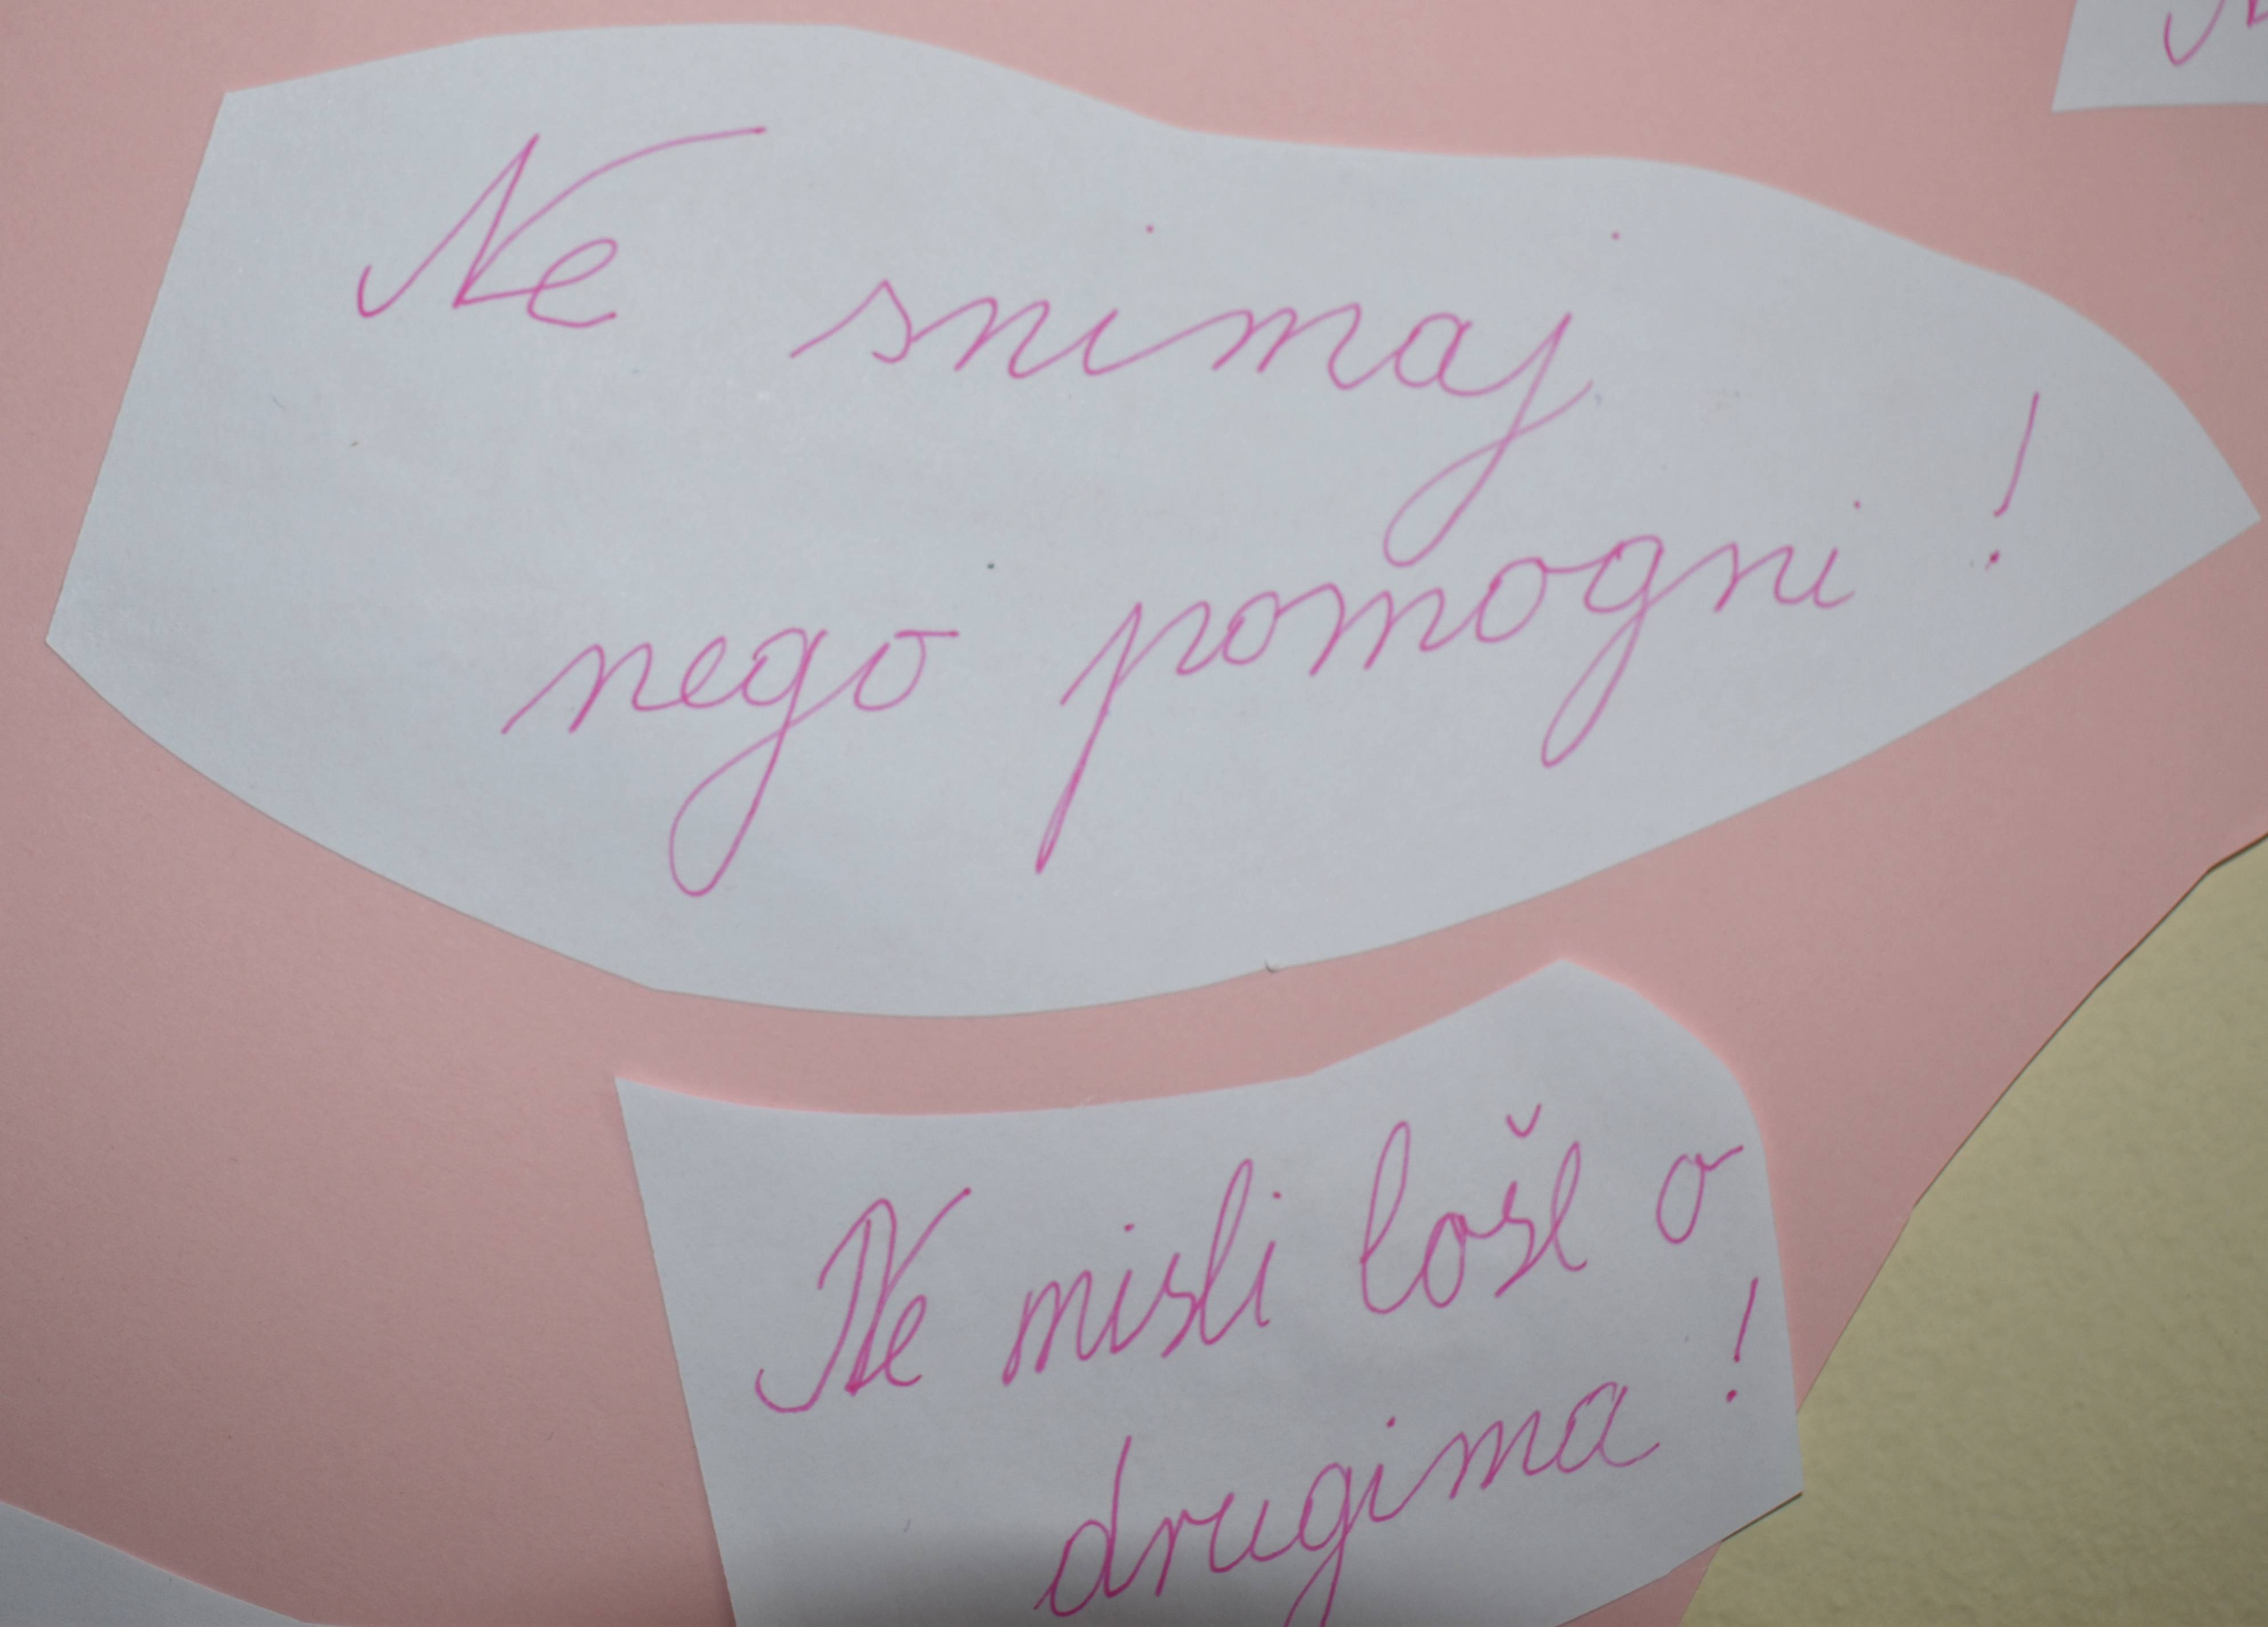 Ne snimaj
nego pomogni !
Ne misli loše o
drugima !